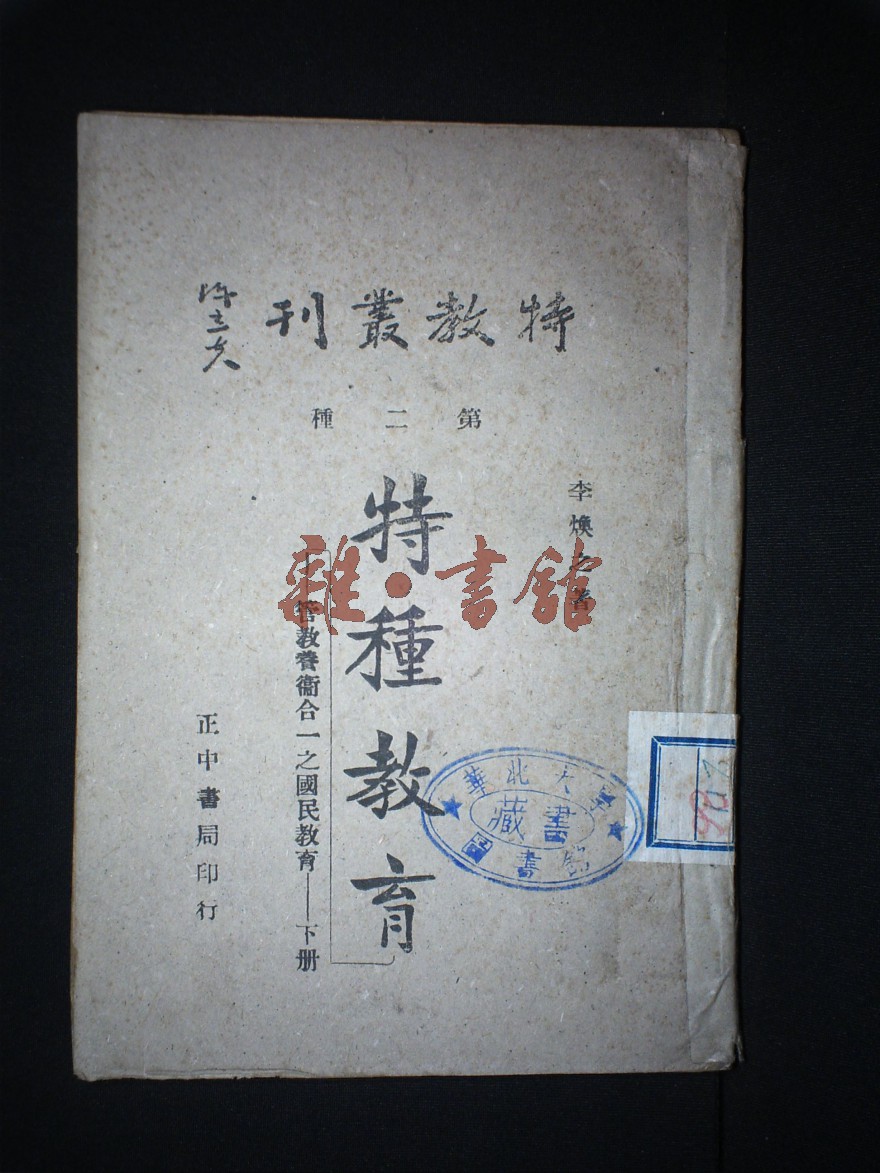 特教叢刊
陳立夫
第二種
李煥之著
特種教育
管教養衞合一之國民教育——下册
正中書局印行
華北大學
圖書館
藏書
雜·書館